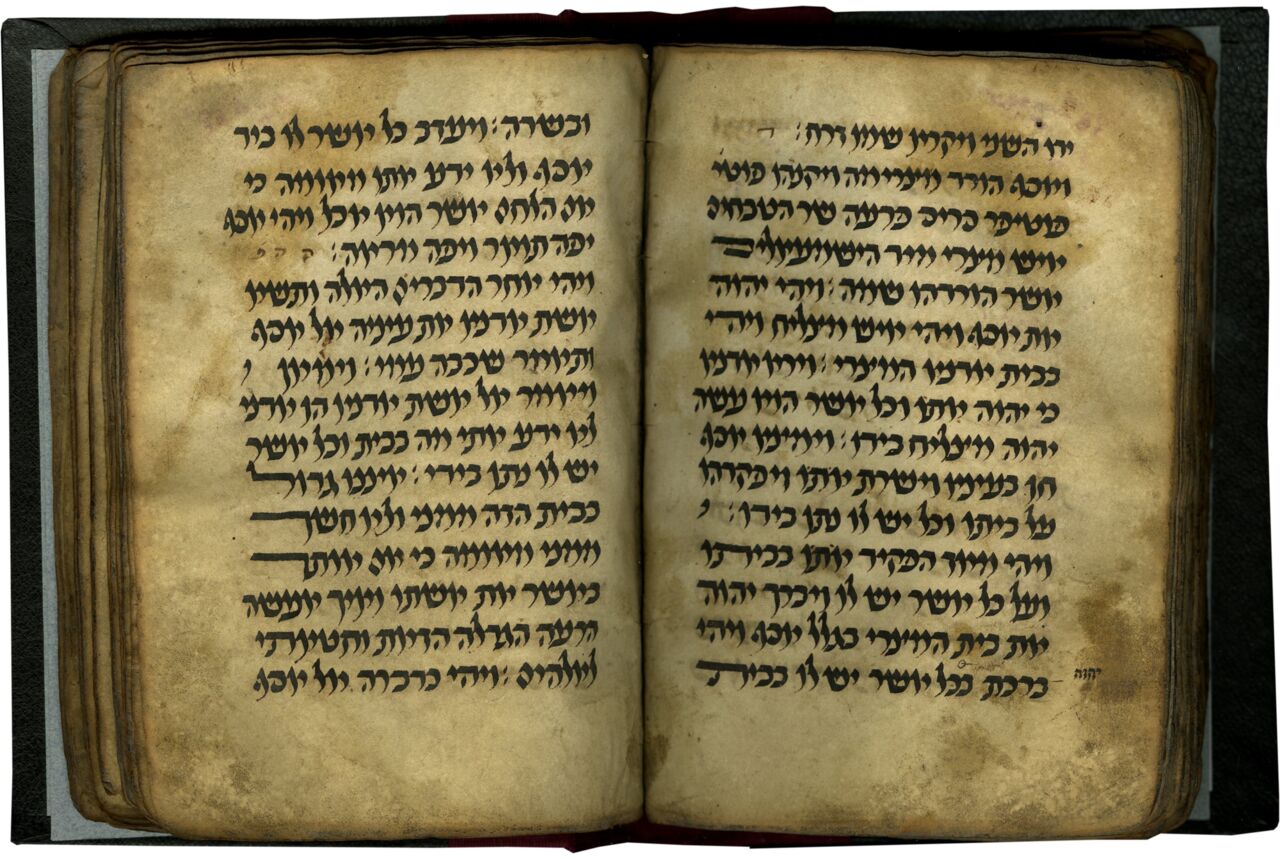 ידו השני ויקרא שמו זרח׃
ויוסף הורד מצרימה ויקנהו פוטי
פוטיפר סריס פרעה שר הטבחים
איש מצרי מיד הישמעאלים
אשר הורדהו שמה׃ ויהי יהוה
את יוסף ויהי איש מצליח ויהי
בבית אדניו המצרי׃ וירא אדניו
כי יהוה אתו וכל אשר הוא עשה
יהוה מצליח בידו׃ וימצא יוסף
חן בעיניו וישרת אתו ויפקדהו
על ביתו וכל יש לו נתן בידו׃
ויהי מאז הפקיד אתו בביתו
ועל כל אשר יש לו ויברך יהוה
את בית המצרי בגלל יוסף ויהי
ברכת בכל אשר יש לו בבית
יהוה
ובשדה׃ ויעזב כל אשר לו ביד
יוסף ולא ידע אתו מאומה כי
אם הלחם אשר הוא אוכל ויהי יוסף
יפה תואר ויפה מראה׃
ויהי אחר הדברים האלה ותשא
אשת אדניו את עיניה אל יוסף
ותאמר שכבה עמי׃ וימאן
ויאמר אל אשת אדניו הן אדני
לא ידע אתי מה בבית וכל אשר
יש לו נתן בידי׃ איננו גדול
בבית הזה ממני ולא חשך
ממני מאומה כי אם אותך
באשר את אשתו ואיך אעשה
הרעה הגדלה הזאת וחטאתי
לאלהים׃ ויהי כדברה אל יוסף